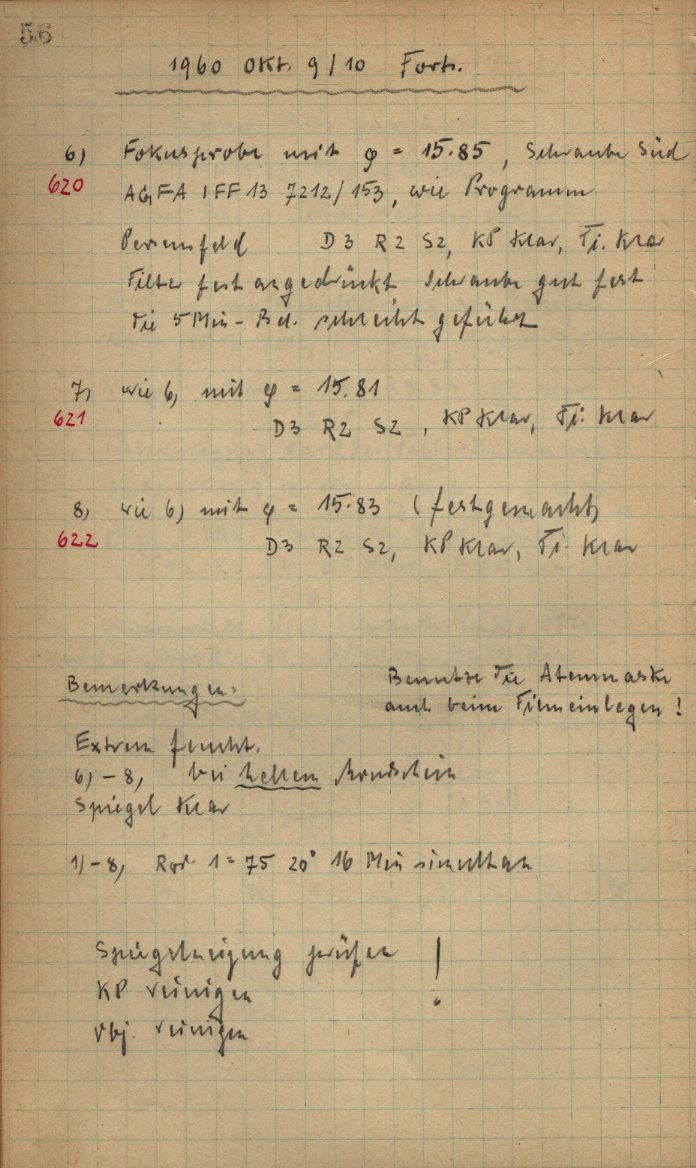 56
1960 Okt. 9/10 Forts.
6) Fokusprobe mit φ = 15.85, Schraube Süd
620 AGFA IFF 13 7212/153, wie Programm
Perseusfeld D3 R2 S2, KP Klar, Fi. Klar
Filter fest angedrückt Schraube gut fest
Die 5 Min-Bel. schlecht geführt
7) wie 6, mit φ = 15.81
621 D3 R2 S2, KP Klar, Fi. Klar
8, wie 6) mit φ = 15.83 (festgemacht)
622 D3 R2 S2, KP Klar, Fi. Klar
Bemerkungen:
Benutze die Atemmaske
auch beim Filmeinlegen!
Extrem feucht.
6) – 8, bei hellem Mondschein
Spiegel klar
1) – 8, 1 = 75 20° 16 Min simultan
Spiegelneigung prüfen !
KP reinigen
Obj. reinigen